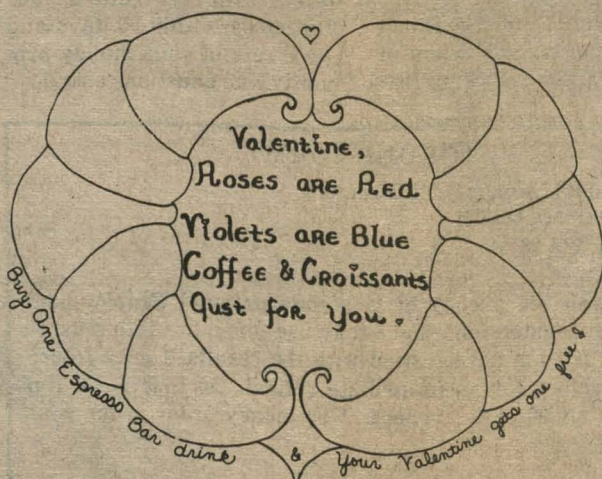 Valentine,
Roses are Red
Violets are Blue
Coffee & Croissants
Just for You.
Buy One Espresso Bar drink
&
Your Valentine gets one free!